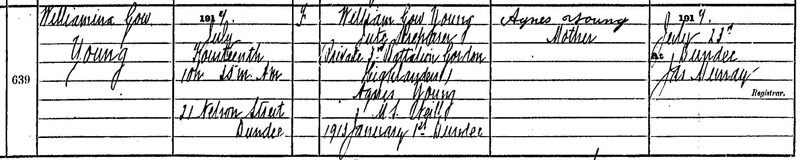 639
Williamina Gow
Young
1917.
July
Fourteenth
10h 25m AM
21 Nelson Street
Dundee
F
William Gow Young
Jute
(Private 2nd Battalion Gordon
Highlanders)
Agnes Young
M.S.
1913 January 1st Dundee
Agnes Young
Mother
1917.
July 23rd
At Dundee
Jas Murray
Registrar.